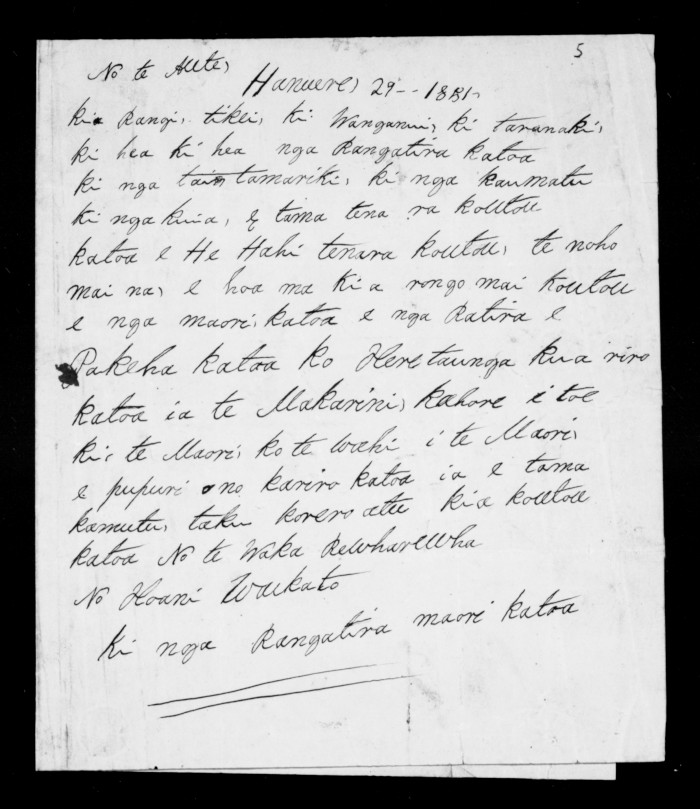 5
No te Aute,
Hanuere, 29-- 1881,
kia Rangi, tikei, ki Wanganui, ki taranaki,
ki hea ki hea nga Rangatira katoa
ki nga tamariki, ki nga kaumatu
ki nga kuia, E tama tena ra koutou
katoa e He Hahi tenara koutou, te noho
mai na, e hoa ma kia rongo mai koutou
e nga maori, katoa e nga Ratira e
Pakeha katoa ko Heretaunga kua riro
katoa ia te Makarini, kahore i toe
ki, te Maori, ko te wahi i te Maori,
e pupuri ono kariro katoa ia e tama
kamutu, taku korero atu kia koutou
katoa No te Waka Rewharewha
No Hoani Waikato
ki nga Rangatira maori katoa